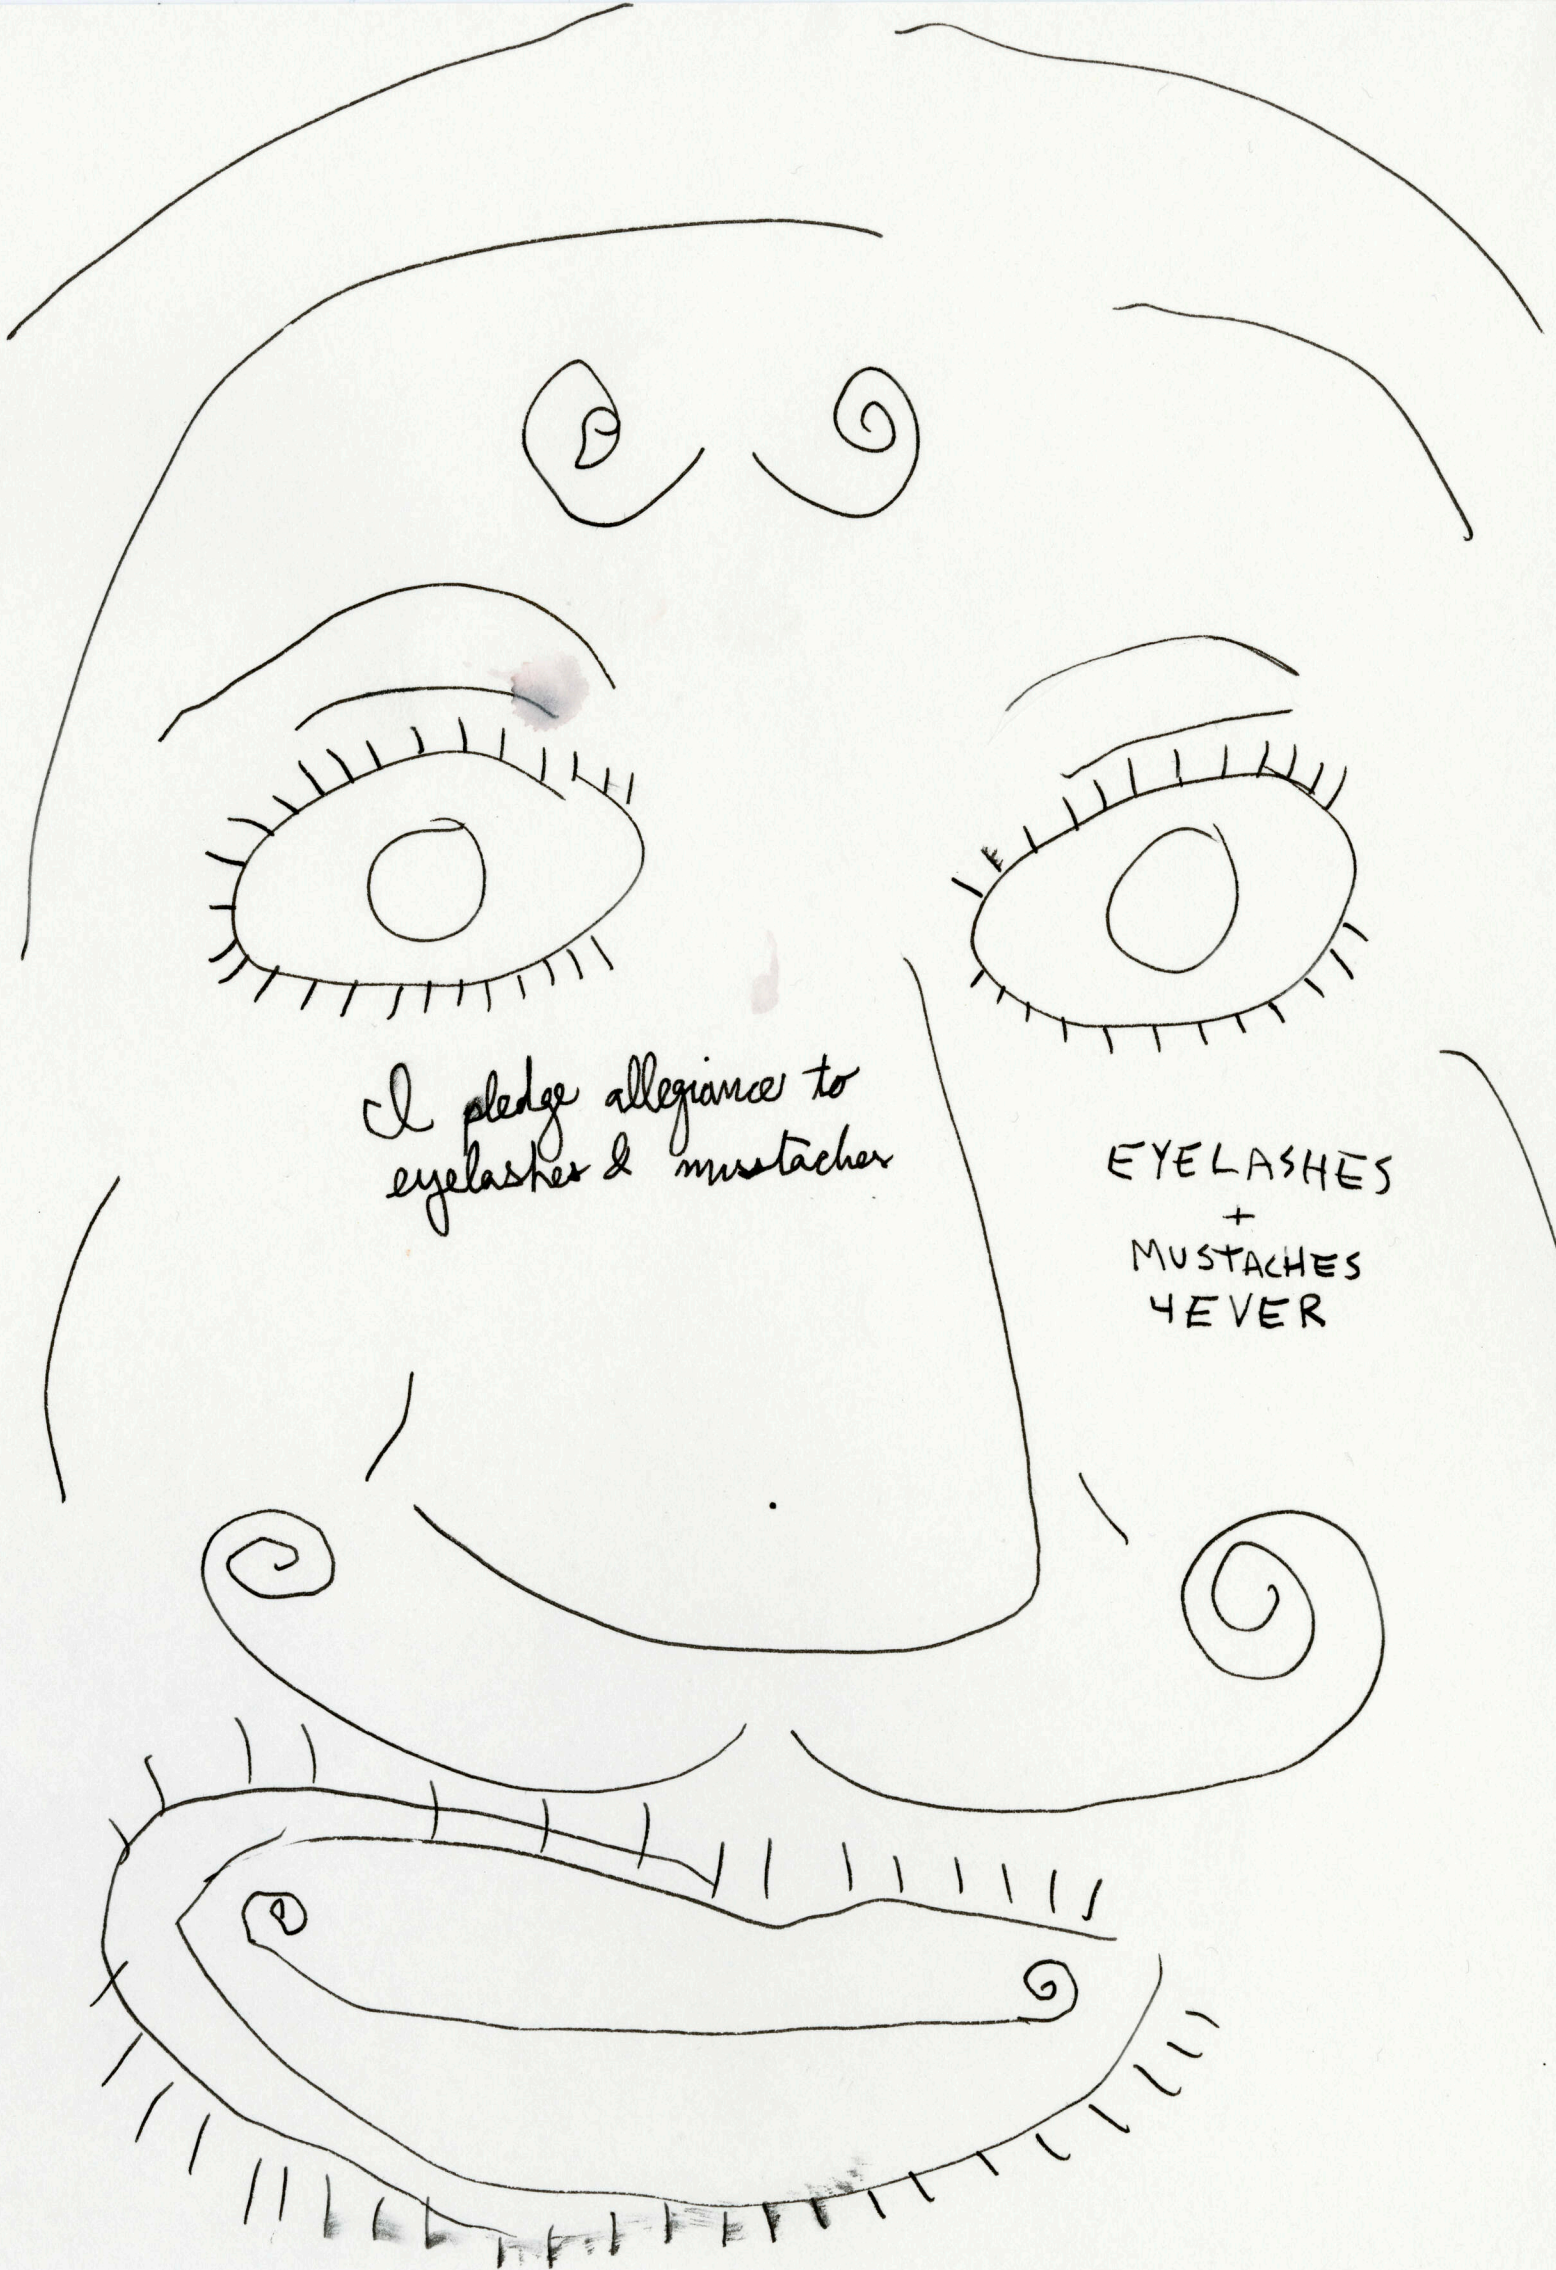 I pledge allegiance to
eyelashes & mustaches
EYELASHES
+
MUSTACHES
4EVER